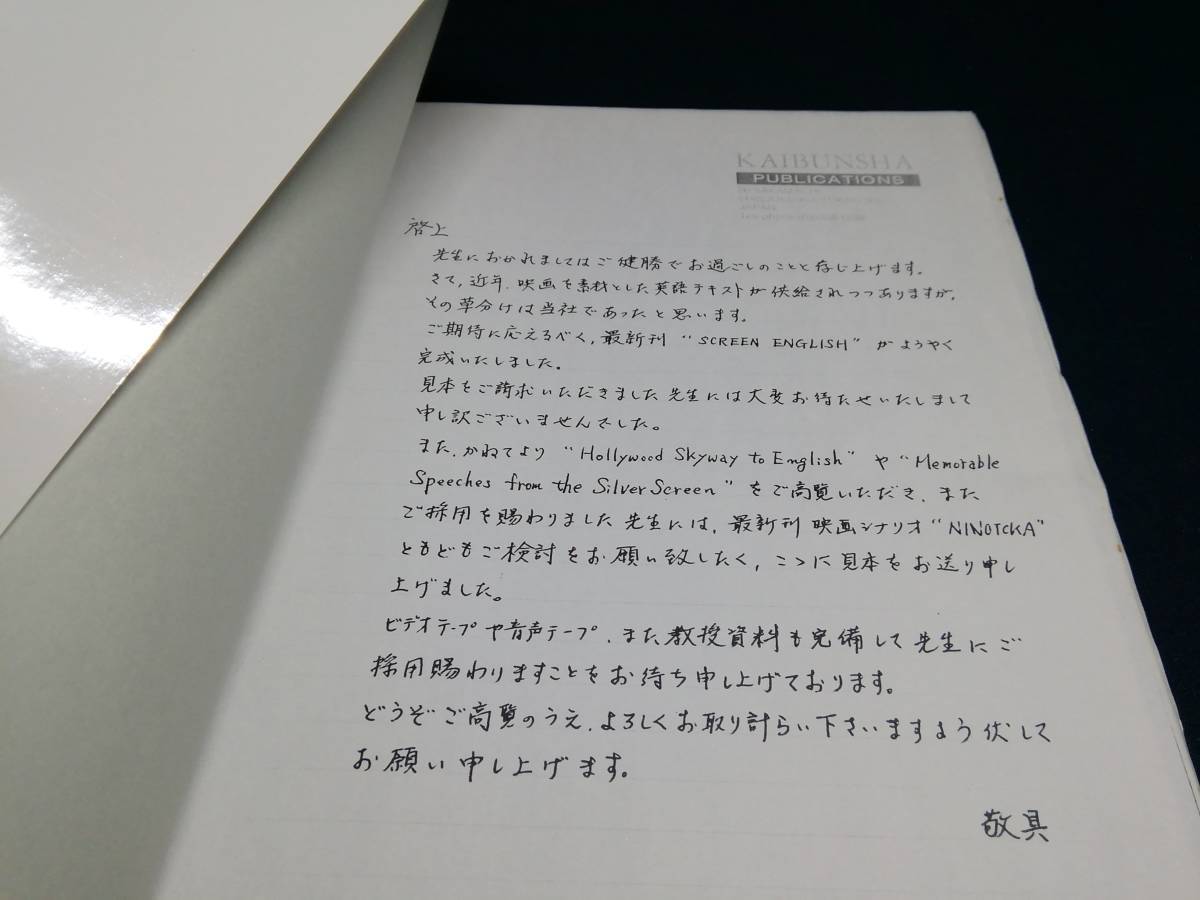 KAIBUNSHA
PUBLICATIONS
啓上
先生におかれましてはご健勝でお過ごしのことと存じ上げます。
さて、近年、映画を素材とした英語テキストが供給されつつありますが、
その草分けは当社であったと思います。
ご期待に応えるべく、最新刊 "SCREEN ENGLISH" がようやく
完成いたしました。
見本をご請求いただきました先生には大変お待たせいたしまして
申し訳ございませんでした。
また、かねてより "Hollywood Skyway to English" や "Memorable
Speeches from the Silver Screen" をご高覧いただき、また
ご採用を賜わりました先生には、最新刊 映画シナリオ "NINOTCKA"
ともどもご検討をお願い致したく、こゝに見本をお送り申し
上げました。
ビデオテープや音声テープ、また教授資料も完備して先生にご
採用賜わりますことをお待ち申し上げております。
どうぞご高覧のうえ、よろしくお取り計らい下さいますよう伏して
お願い申し上げます。
敬具